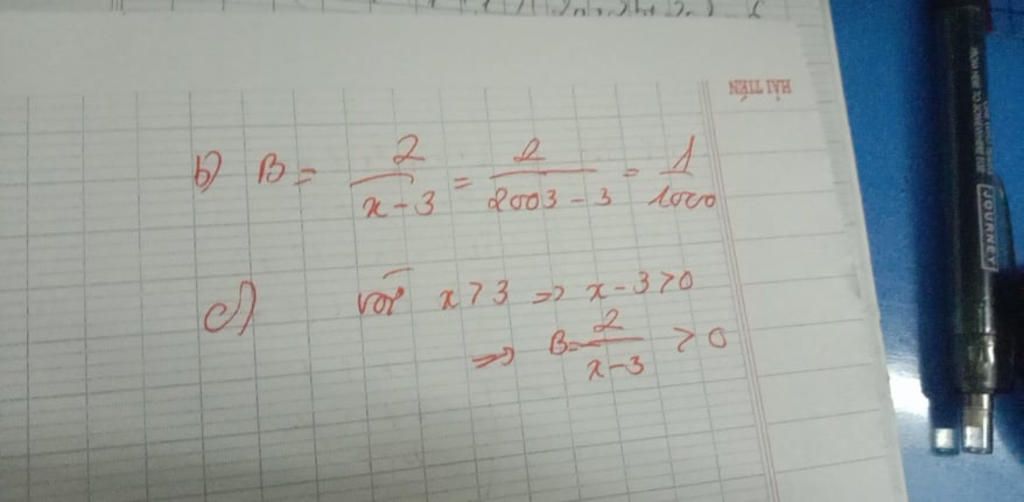 HẢI TIẾN
b) B = 2/(x-3) = 2/(2003-3) = 1/1000
c) với x>3 => x-3>0
=> B = 2/(x-3) > 0
JOURNEY